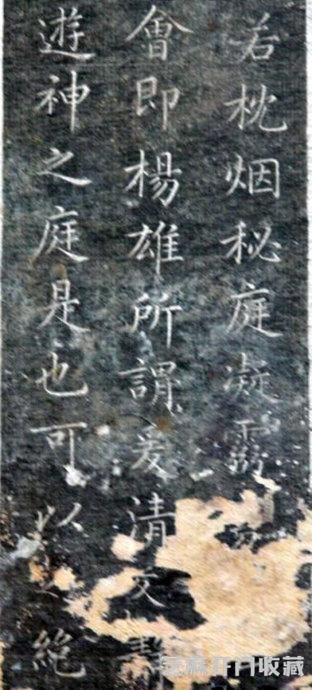 若枕烟秘庭凝虛
會即楊雄所謂爰清爰靜
遊神之庭是也可以絕
收藏